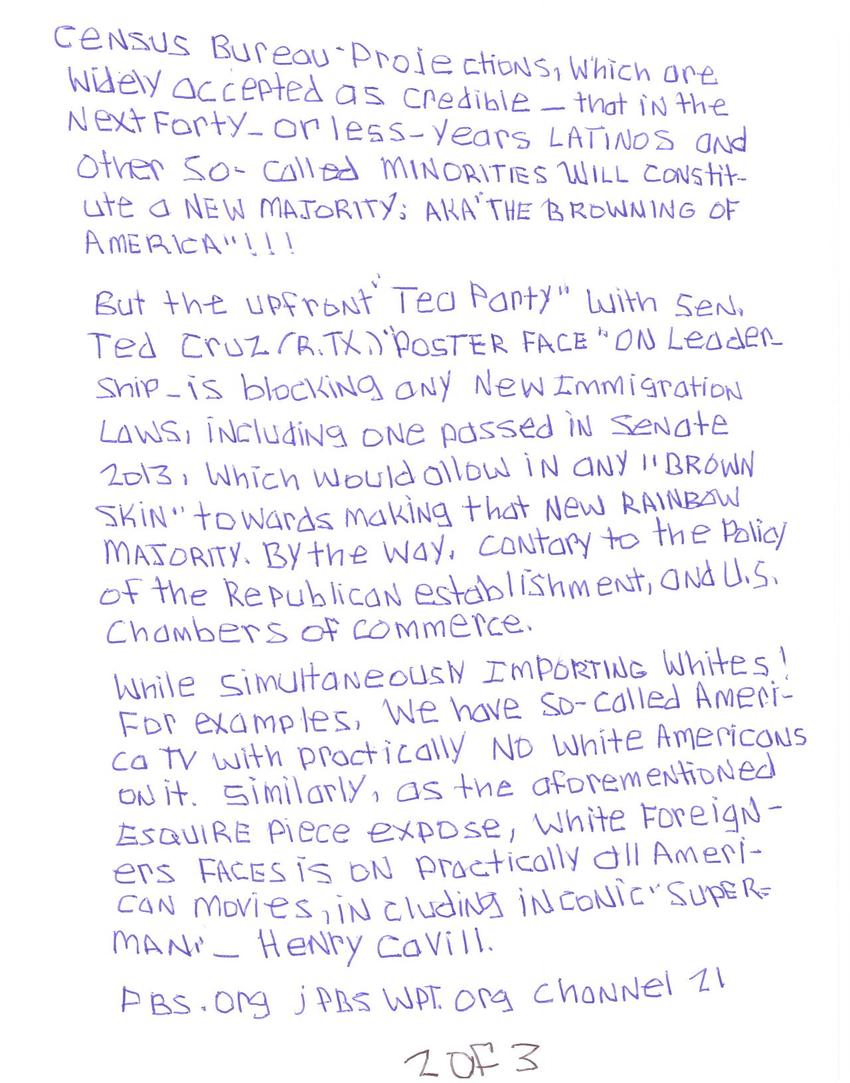 CENSUS Bureau-Projections, Which are
Widely accepted as credible — that in the
Next Forty-or less-years LATINOS and
Other So-called MINORITIES WILL CONStit-
ute a NEW MAJORITY; AKA "THE BROWNING OF
AMERICA"!!!
But the upfront "Tea Party" with Sen.
Ted Cruz (R.TX.) "POSTER FACE" ON Leader-
ship-is blocking any New Immigration
Laws, including one passed in Senate
2013, Which would allow in any "BROWN
SKIN" towards making that NEW RAINBOW
MAJORITY. By the way, contary to the Policy
of the Republican establishment, and U.S.
Chambers of commerce.
While simultaneously IMPORTING Whites!
For examples, We have so-called Ameri-
ca TV with practically NO White Americans
on it. Similarly, as the aforementioned
ESQUIRE Piece expose, White Foreign-
ers FACES is ON practically all Ameri-
can movies, in cluding inconic "SUPER-
MAN" — Henry Cavill.
PBS.org ; PBS WPT.org channel 21
2 OF 3